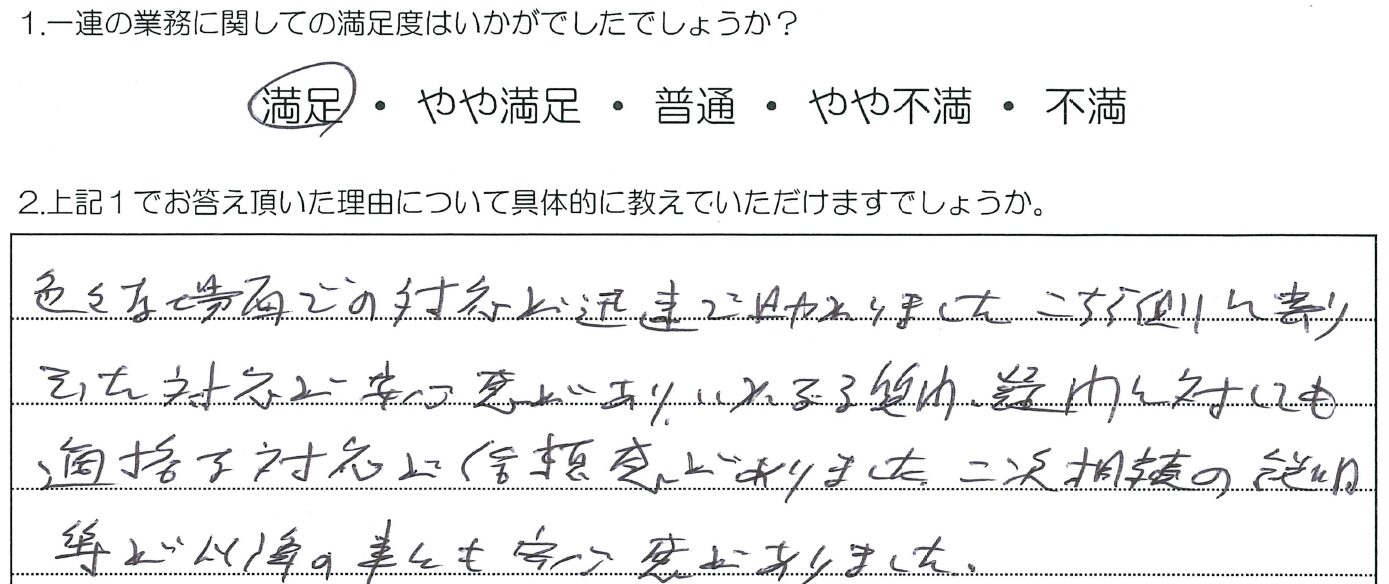 1.一連の業務に関しての満足度はいかがでしたでしょうか?
満足 ・ やや満足 ・ 普通 ・ やや不満 ・ 不満
2.上記1でお答え頂いた理由について具体的に教えていただけますでしょうか。
色々な場面での対応が迅速で助かりました こちら側に寄り
そった対応が安心感があり、いかなる質問、疑問に対しても
適格な対応に信頼感がありました。二次相続の説明
等が以降の事にも安心感がありました。